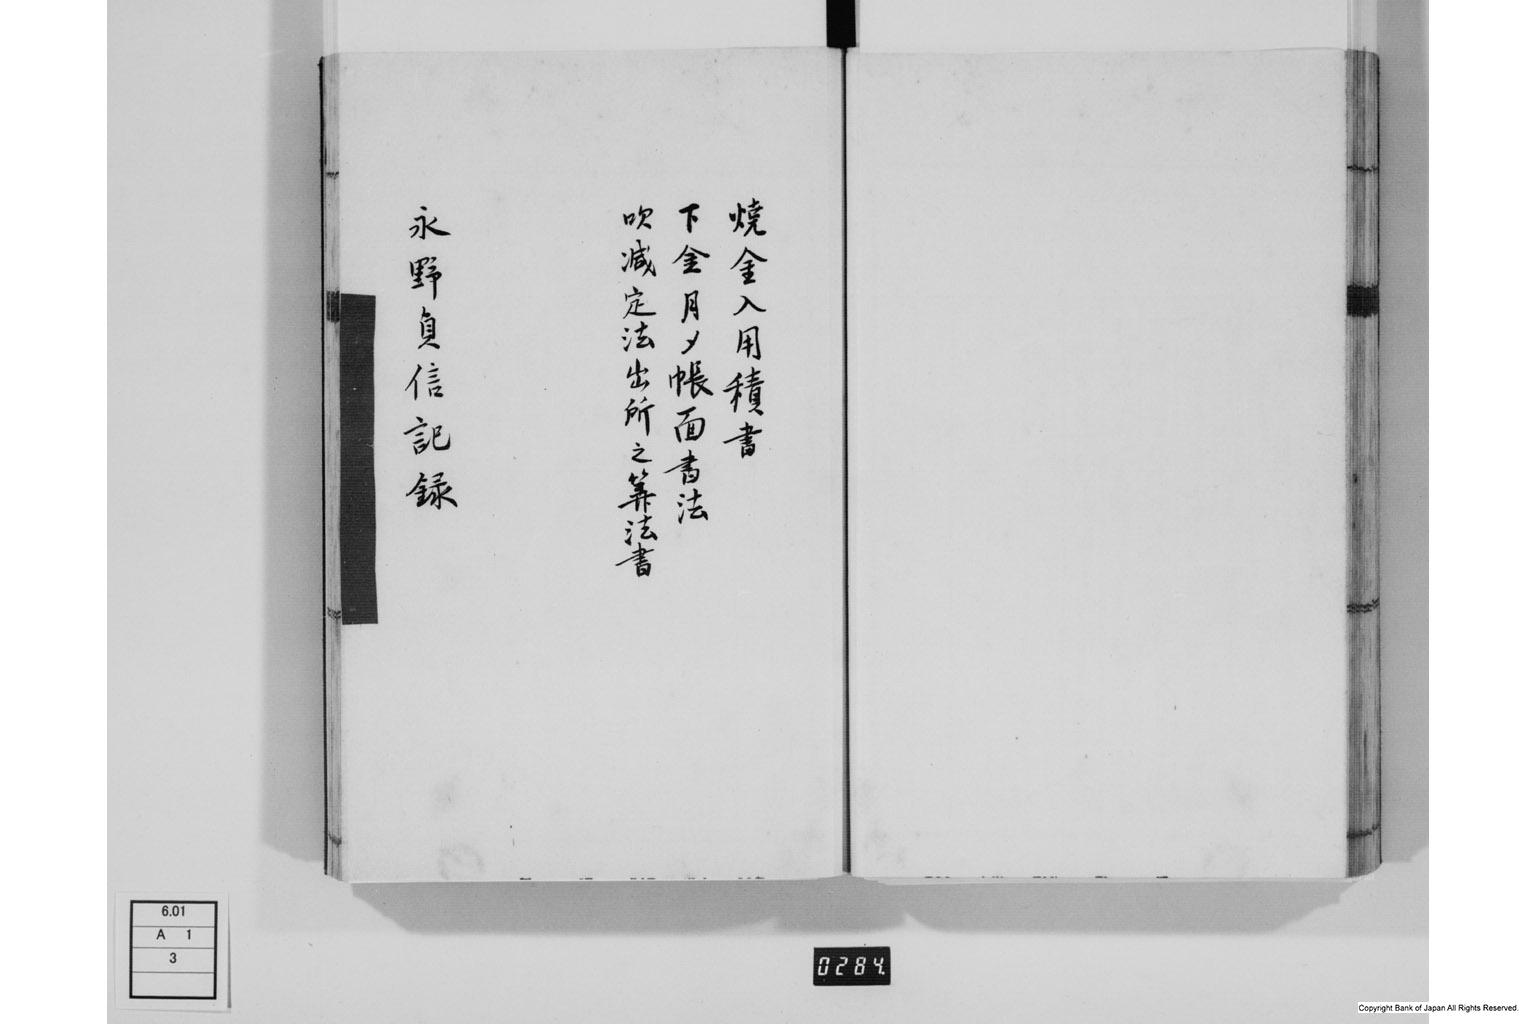 焼金入用積書
下金月〆帳面書法
吹減定法出所之筭法書
永野貞信記録
6.01
A 1
3
0284
Copyright Bank of Japan All Rights Reserved.